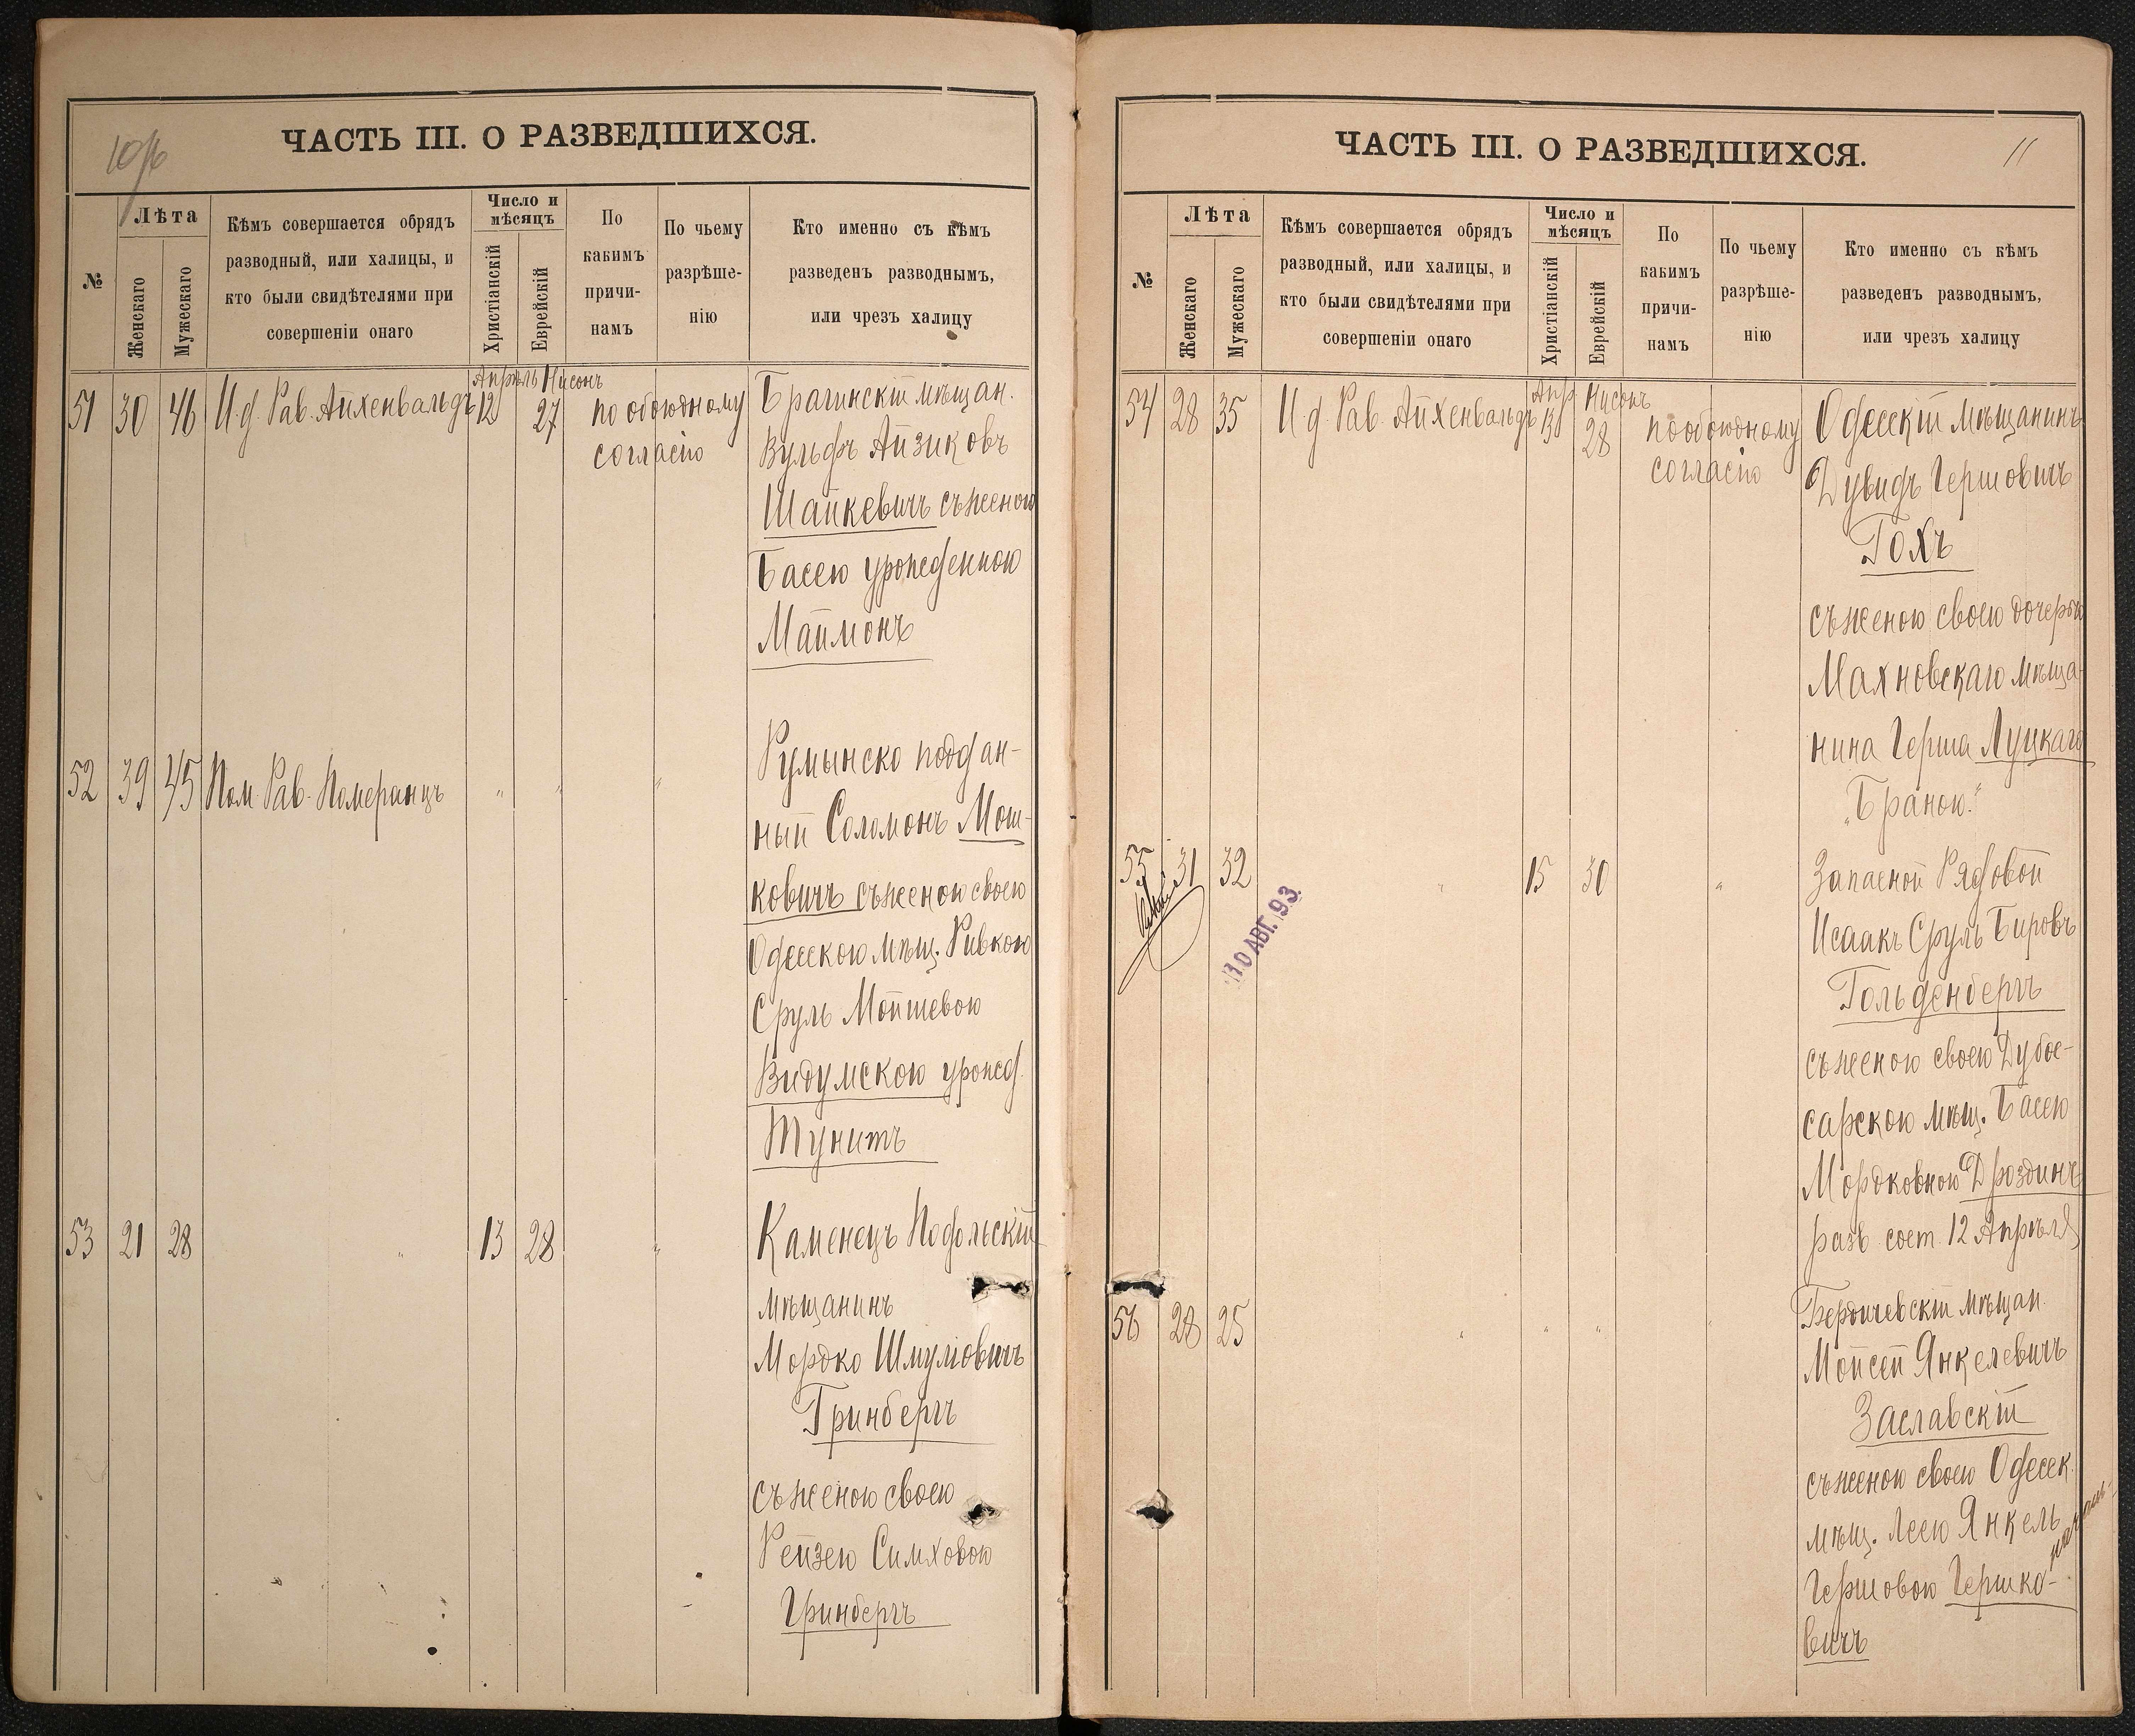 10 об
ЧАСТЬ III. О РАЗВЕДШИХСЯ.
№
Лѣта
Женскаго
Мужескаго
Кѣмъ совершается обрядъ
разводный, или халицы, и
кто были свидѣтелями при
совершеніи онаго
Число и
мѣсяцъ
Христіанскій
Еврейскій
По
какимъ
причи-
намъ
По чьему
разрѣше-
нію
Кто именно съ кѣмъ
разведенъ разводнымъ,
или чрезъ халицу
Апрѣль Нисонъ
51 30 46 И.д. Рав. Айхенвальдъ 12 27 по обоюдному
согласію
Брагинскій мѣщан.
Вульфъ Айзиковъ
Шапкевичъ съ женою
Басею урожденною
Маймонъ
52 39 45 Пом. Рав. Померанцъ " " "
Румынско поддан-
ный Соломонъ Мош-
ковичъ съ женою своею
Одесскою мѣщ. Ривкою
Сруль Мойшевою
Видумскою урожд.
Тунитъ
53 21 28 " 13 28 "
Каменецъ Подольскій
мѣщанинъ
Мордко Шмулювичъ
Гринбергъ
съ женою своею
Рейзею Симховою
Гринбергъ
11
ЧАСТЬ III. О РАЗВЕДШИХСЯ.
№
Лѣта
Женскаго
Мужескаго
Кѣмъ совершается обрядъ
разводный, или халицы, и
кто были свидѣтелями при
совершеніи онаго
Число и
мѣсяцъ
Христіанскій
Еврейскій
По
какимъ
причи-
намъ
По чьему
разрѣше-
нію
Кто именно съ кѣмъ
разведенъ разводнымъ,
или чрезъ халицу
Апр. Нисонъ
54 28 35 И.д. Рав. Айхенвальдъ 13 28 по обоюдному
согласію
Одесскій мѣщанинъ
Дувидъ Гершовичъ
Гохъ
съ женою своею дочерью
Махновскаго мѣща-
нина Герша Луцкаго
"Браною."
55 31 32 " 15 30 "
10 АВГ. 93.
Запасной Рядовой
Исаакъ Сруль Бировъ
Гольденбергъ
съ женою своею Дубос-
сарскою мѣщ. Басею
Мордковною Дроздинъ
разв. сост. 12 Апрѣля
56 28 25 " " " "
Бердичевскій мѣщан.
Мойсей Янкелевичъ
Заславскій
съ женою своею Одесск.
мѣщ. Леею Янкель
Гершовою Гершко-
вичъ